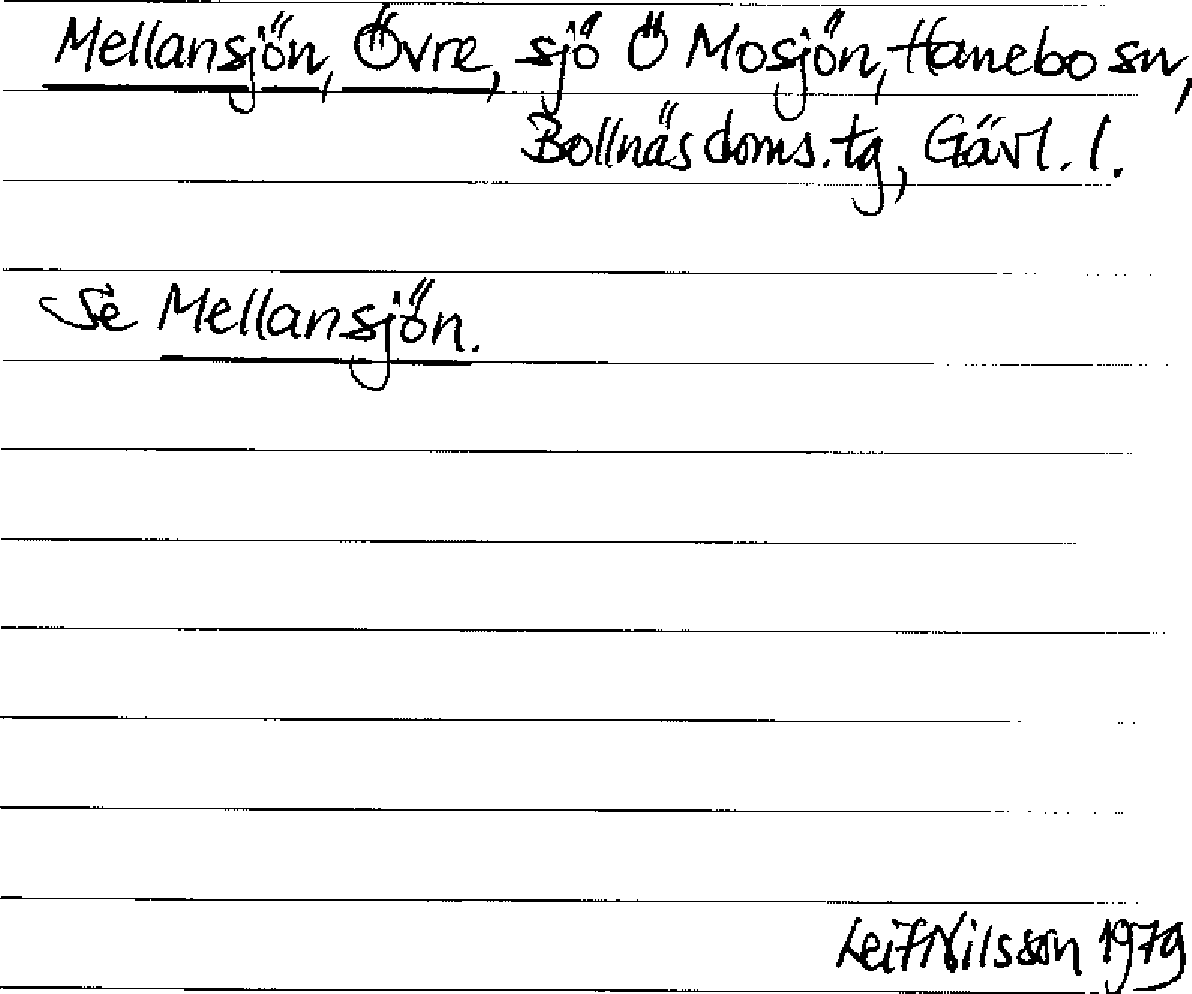 Mellansjön, Övre, sjö Ö Mosjön, Hanebo sn,
Bollnäs doms.tg, Gävl. l.
Se Mellansjön.
Leif Nilsson 1979